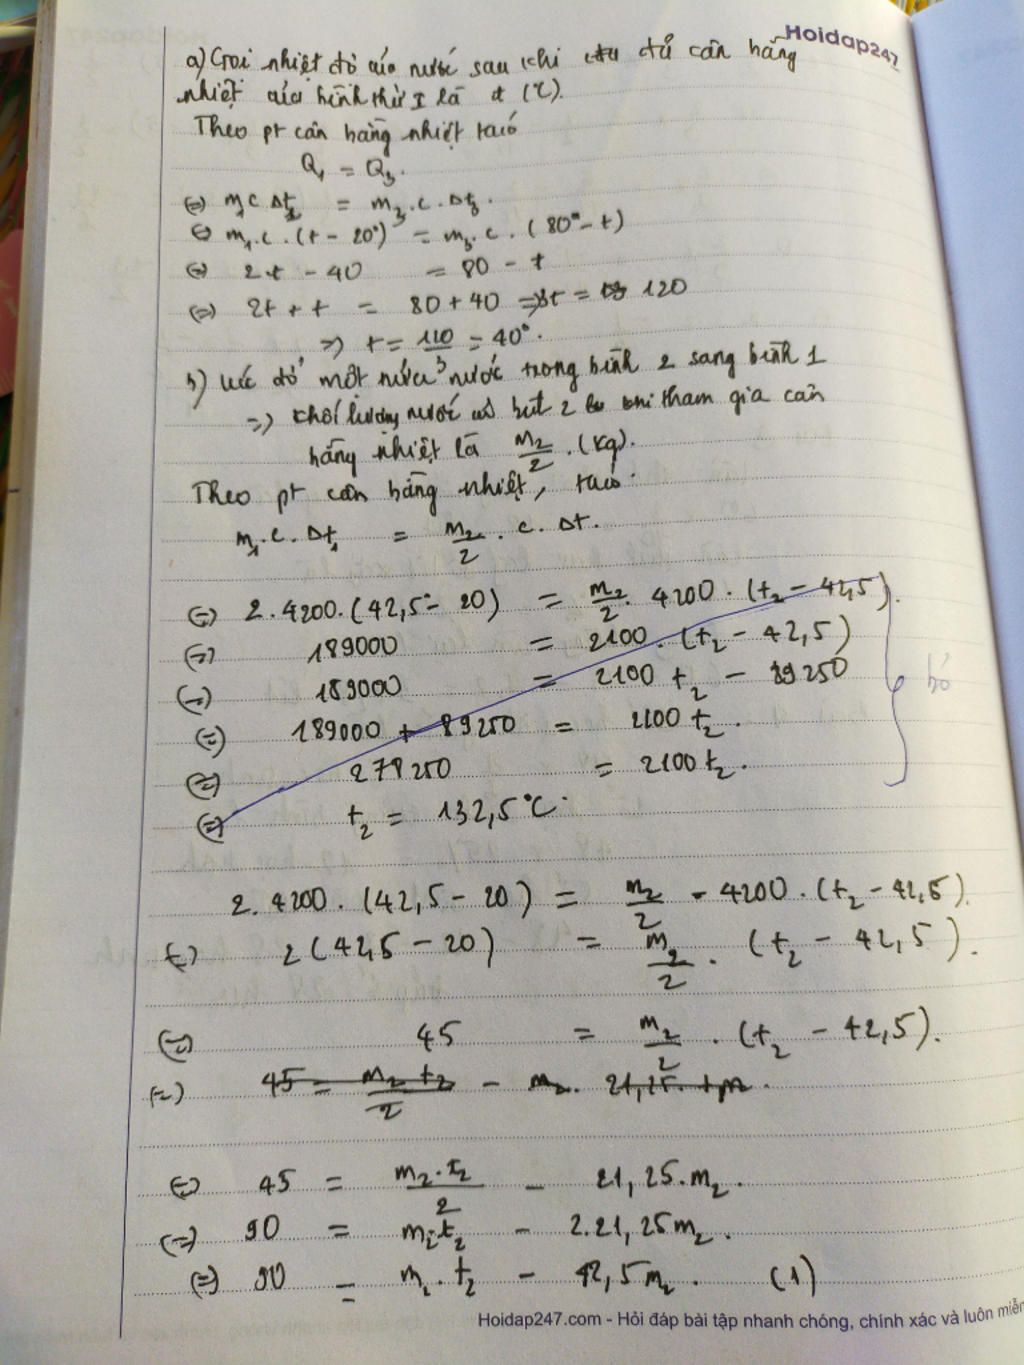 Hoidap247
a) Gọi nhiệt độ của nước sau khi đã cân bằng
nhiệt của bình thứ I là t (℃).
Theo pt cân bằng nhiệt ta có
Q₁ = Q₃.
(=) m₁c Δt₂ = m₃.c.Δt₃.
(=) m₁.c.(t - 20°) = m₃.c.(80° - t)
(=) 2t - 40 = 80 - t
(=) 2t + t = 80 + 40 => 3t = 120
=> t = 110/3 = 40°.
b) lúc đổ một nửa nước trong bình 2 sang bình 1
=> khối lượng nước ở bình 2 khi tham gia cân
bằng nhiệt là m₂/2 .(kg).
Theo pt cân bằng nhiệt, ta có.
m₁.c.Δt₁ = m₂/2 . c.Δt.
(=) 2.4200.(42,5 - 20) = m₂/2 . 4200.(t₂ - 42,5).
(=) 189000 = 2100.(t₂ - 42,5)
(=) 189000 = 2100 t₂ - 89250
bỏ
(=) 189000 + 89250 = 2100 t₂.
(=) 278250 = 2100 t₂.
(=) t₂ = 132,5℃.
2.4200.(42,5 - 20) = m₂/2 - 4200.(t₂ - 42,5).
(=) 2(42,5 - 20) = m₂/2 . (t₂ - 42,5).
(=) 45 = m₂/2 . (t₂ - 42,5).
(=) 45 = m₂ t₂/2 - m₂. 21,25.
(=) 45 = m₂.t₂/2 - 21,25.m₂.
(=) 90 = m₂.t₂ - 2.21,25m₂.
(=) 90 = m₂.t₂ - 42,5m₂. (1)
Hoidap247.com - Hỏi đáp bài tập nhanh chóng, chính xác và luôn miễn